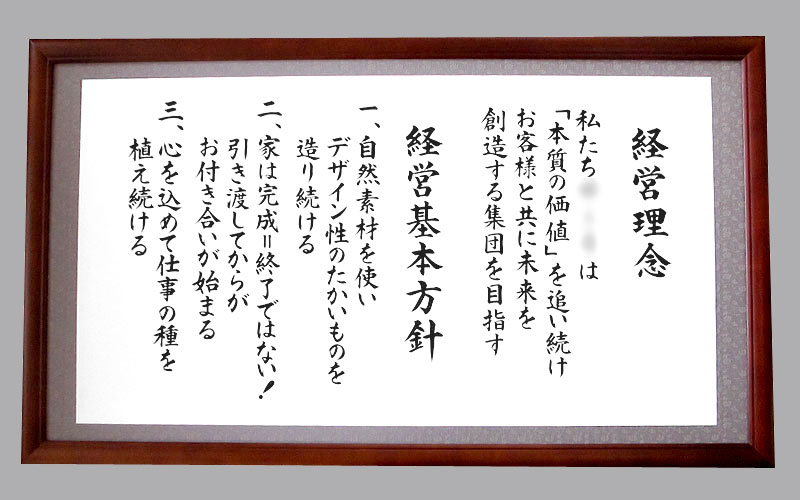 経営理念
私たち は
「本質の価値」を追い続け
お客様と共に未来を
創造する集団を目指す
経営基本方針
一、自然素材を使い
デザイン性のたかいものを
造り続ける
二、家は完成＝終了ではない！
引き渡してからが
お付き合いが始まる
三、心を込めて仕事の種を
植え続ける